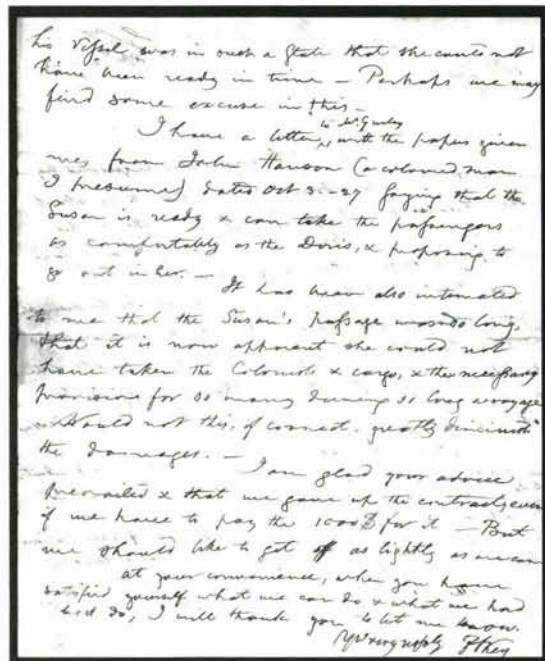 his Vessel was in such a state that she could not
have been ready in time — Perhaps we may
find some excuse in this —
to Mr. Gurley
I have a letter, with the papers given
me, from John Hanson (a colored man
I presume) dated Oct 3. —27 saying that the
Susan is ready & can take the passengers
as comfortably as the Doris, & proposing to
go out in her. —
It has been also intimated
to me that the Susan's passage was so long,
that it is now apparent she could not
have taken the Colonists & cargo, & the necessary
provisions for so many during so long a voyage
Would not this, if correct, greatly diminish
the damages. —
I am glad your advice
prevailed & that we gave up the contract, even
if we have to pay the 1000$ for it — But
we should like to get off as lightly as we can
at your convenience, when you have
satisfied yourself what we can do & what we had
best do, I will thank you to let me know.
Yrs very respfly F S Key